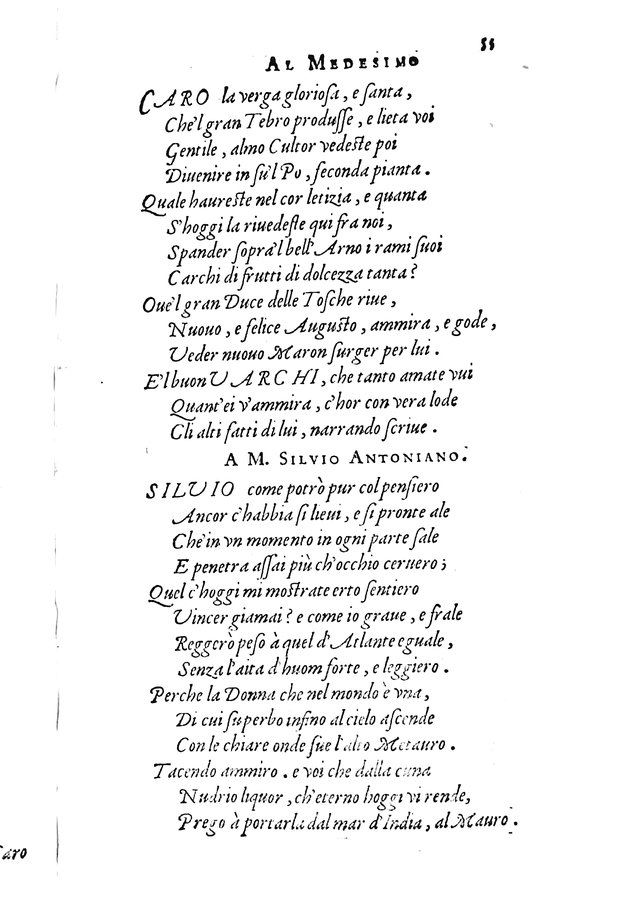 55
AL MEDESIMO
CARO la verga gloriosa, e santa,
Che'l gran Tebro produsse, e lieta voi
Gentile, almo Cultor vedeste poi
Diuenire in su'l Po, seconda pianta.
Quale haureste nel cor letizia, e quanta
S'hoggi la riuedeste qui fra noi,
Spander sopra'l bell'Arno i rami suoi
Carchi di frutti di dolcezza tanta?
Oue'l gran Duce delle Tosche riue,
Nuouo, e felice Augusto, ammira, e gode,
Veder nuouo Maron surger per lui.
E'l buon VARCHI, che tanto amate vui
Quant'ei v'ammira, c'hor con vera lode
Gli alti fatti di lui, narrando scriue.
A M. SILVIO ANTONIANO.
SILVIO come potrò pur col pensiero
Ancor c'habbia si lieui, e si pronte ale
Che'in vn momento in ogni parte sale
E penetra assai più ch'occhio ceruero;
Quel c'hoggi mi mostrate erto sentiero
Vincer giamai? e come io graue, e frale
Reggerò peso à quel d'Atlante eguale,
Senza l'aita d'huom forte, e leggiero.
Perche la Donna che nel mondo è vna,
Di cui superbo infino al cielo ascende
Con le chiare onde sue l'alto Metauro.
Tacendo ammiro. e voi che dalla cuna
Nudrio liquor, ch'eterno hoggi vi rende,
Prego à portarla dal mar d'India, al Mauro.
aro